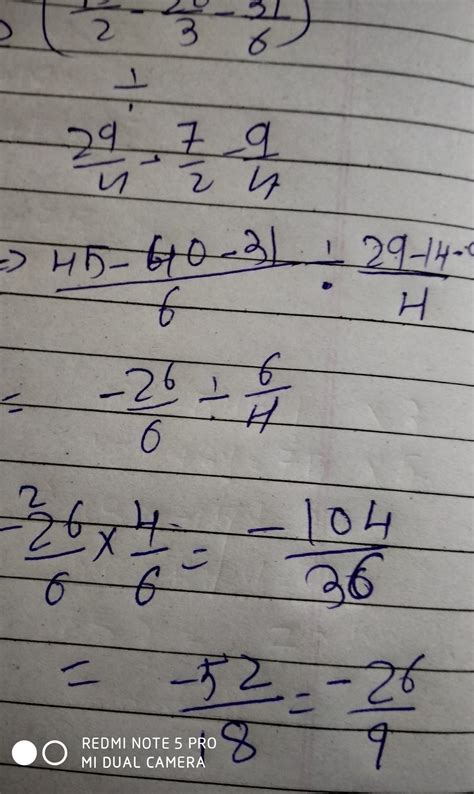 (15/2 - 20/3 - 31/6)
÷
29/4 - 7/2 - 9/4
=> 45-40-31/6 ÷ 29-14-9/4
= -26/6 ÷ 6/4
-26/6 × 4/6 = -104/36
= -52/18 = -26/9
REDMI NOTE 5 PRO
MI DUAL CAMERA